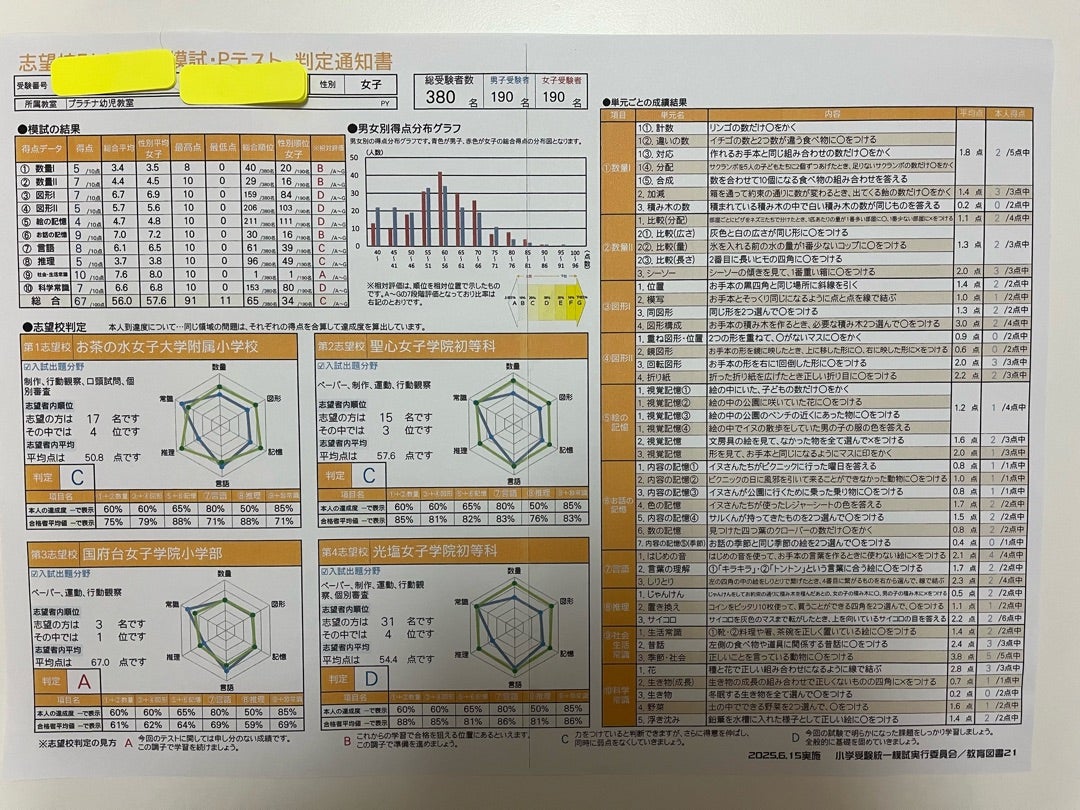 志望 模試・Pテスト 判定通知書
受験番号 性別 女子
所属教室 プラチナ幼児教室 PY
総受験者数 男子受験者 女子受験者
380 名 190 名 190 名
●模試の結果
得点データ 得点 総合平均 性別平均 女子 最高点 最低点 総合順位 性別順位 女子 ※相対評価
① 数量Ⅰ 5 /10点 3.4 3.5 8 0 40 /380名 20 /190名 B /A~G
② 数量Ⅱ 7 /10点 4.4 4.5 10 0 29 /380名 16 /190名 B /A~G
③ 図形Ⅰ 7 /10点 6.7 6.9 10 0 159 /380名 84 /190名 D /A~G
④ 図形Ⅱ 5 /10点 5.7 5.6 10 0 206 /380名 103 /190名 D /A~G
⑤ 絵の記憶 4 /10点 4.7 4.8 10 0 211 /380名 111 /190名 D /A~G
⑥ お話の記憶 9 /10点 7.0 7.2 10 0 60 /380名 30 /190名 B /A~G
⑦ 言語 8 /10点 6.1 6.5 10 0 61 /380名 39 /190名 C /A~G
⑧ 推理 5 /10点 3.7 3.8 10 0 96 /380名 49 /190名 C /A~G
⑨ 社会・生活常識 10 /10点 7.6 8.0 10 0 1 /380名 1 /190名 A /A~G
⑩ 科学常識 7 /10点 6.6 6.8 10 0 153 /380名 80 /190名 D /A~G
総 合 67 /100点 56.0 57.6 91 11 65 /380名 34 /190名 C /A~G
●男女別得点分布グラフ
男女別の得点分布グラフです。青色が男子、赤色が女子の総合得点の分布図となります。
(人数)
50
40
30
20
10
0
40 45 50 55 60 65 70 75 80 85 90 95 100 点
~ ~ ~ ~ ~ ~ ~ ~ ~ ~ ~ ~ 数
41 46 51 56 61 66 71 76 81 86 91 96
※相対評価は、順位を相対位置で示したもの
です。A~Gの7段階評価となっており比率は
右記のとおりです。
A B C D E F G
●志望校判定 本人到達度について…同じ領域の問題は、それぞれの得点を合算して達成度を算出しています。
第1志望校 お茶の水女子大学附属小学校
☑入試出題分野
制作、行動観察、口頭試問、個
別審査
志望者内順位
志望の方は 17 名です
その中では 4 位です
志望者内平均
平均点は 50.8 点です
判定 C
数量
図形
記憶
言語
推理
常識
項目名 ①+②数量 ③+④図形 ⑤+⑥記憶 ⑦言語 ⑧推理 ⑨+⑩常識
本人の達成度 ー で表示 60% 60% 65% 80% 50% 85%
合格者平均値 ー で表示 75% 79% 88% 71% 88% 71%
第2志望校 聖心女子学院初等科
☑入試出題分野
ペーパー、制作、運動、行動観察
志望者内順位
志望の方は 15 名です
その中では 3 位です
志望者内平均
平均点は 57.6 点です
判定 C
数量
図形
記憶
言語
推理
常識
項目名 ①+②数量 ③+④図形 ⑤+⑥記憶 ⑦言語 ⑧推理 ⑨+⑩常識
本人の達成度 ー で表示 60% 60% 65% 80% 50% 85%
合格者平均値 ー で表示 85% 81% 82% 83% 76% 83%
第3志望校 国府台女子学院小学部
☑入試出題分野
ペーパー、運動、行動観察
志望者内順位
志望の方は 3 名です
その中では 1 位です
志望者内平均
平均点は 67.0 点です
判定 A
数量
図形
記憶
言語
推理
常識
項目名 ①+②数量 ③+④図形 ⑤+⑥記憶 ⑦言語 ⑧推理 ⑨+⑩常識
本人の達成度 ー で表示 60% 60% 65% 80% 50% 85%
合格者平均値 ー で表示 61% 62% 64% 69% 59% 69%
第4志望校 光塩女子学院初等科
☑入試出題分野
ペーパー、制作、運動、行動観
察、個別審査
志望者内順位
志望の方は 31 名です
その中では 4 位です
志望者内平均
平均点は 54.4 点です
判定 D
数量
図形
記憶
言語
推理
常識
項目名 ①+②数量 ③+④図形 ⑤+⑥記憶 ⑦言語 ⑧推理 ⑨+⑩常識
本人の達成度 ー で表示 60% 60% 65% 80% 50% 85%
合格者平均値 ー で表示 88% 85% 81% 86% 81% 86%
※志望校判定の見方 A 今回のテストに関しては申し分のない成績です。
この調子で学習を続けましょう。
B これからの学習で合格を狙える位置にあるといえます。
この調子で準備を進めましょう。
C 力をつけていると判断できますが、さらに得意を伸ばし、
同時に弱点をなくしていきましょう。
D 今回の試験で明らかになった課題をしっかり学習しましょう。
全般的に基礎を固めていきましょう。
●単元ごとの成績結果
項目 単元名 内容 平均点 本人得点
①数量Ⅰ
1①. 計数 リンゴの数だけ〇をかく
1②. 違いの数 イチゴの数と2つ数が違う食べ物に〇をつける
1③. 対応 作れるお手本と同じ組み合わせの数だけ〇をかく
1④. 分配 サクランボを5人の子どもたちに2個ずつあげたとき、足りないサクランボの数だけ〇をかく
1⑤. 合成 数を合わせて10個になる食べ物の組み合わせを答える
1.8 点 2 /5点中
2. 加減 箱を通って約束の通りに数が変わるとき、出てくる飴の数だけ〇をかく 1.4 点 3 /3点中
3. 積み木の数 積まれている積み木の中で白い積み木の数が同じものを答える 0.2 点 0 /2点中
②数量Ⅱ
1. 比較(分配) 1.1 点 2 /4点中
2①. 比較(広さ) 灰色と白の広さが同じ形に〇をつける
2②. 比較(量) 氷を入れる前の水の量が1番少ないコップに〇をつける
2③. 比較(長さ) 2番目に長いヒモの四角に〇をつける
1.3 点 2 /3点中
3. シーソー シーソーの傾きを見て、1番重い箱に〇をつける 2.0 点 3 /3点中
③図形Ⅰ
1. 位置 お手本の黒四角と同じ場所に斜線を引く 1.4 点 2 /2点中
2. 模写 お手本とそっくり同じになるように点と点を線で結ぶ 1.0 点 1 /2点中
3. 同図形 同じ形を2つ選んで〇をつける 1.3 点 2 /2点中
4. 図形構成 お手本の積み木を作るとき、必要な積み木2つ選んで〇をつける 3.0 点 2 /4点中
④図形Ⅱ
1. 重ね図形・位置 2つの形を重ねて、〇がないマスに〇をかく 0.9 点 0 /2点中
2. 鏡図形 お手本の形を鏡に映したとき、上に移した形に〇、右に映した形に×をつける 0.6 点 0 /2点中
3. 回転図形 お手本の形を右に1回倒した形に〇をつける 2.0 点 3 /3点中
4. 折り紙 折った折り紙を広げたとき正しい折り目に〇をつける 2.2 点 2 /3点中
⑤絵の記憶
1. 視覚記憶① 絵の中にいた、子どもの数だけ〇をかく
1. 視覚記憶② 絵の中の公園に咲いていた花に〇をつける
1. 視覚記憶③ 絵の中の公園のベンチの近くにあった物に〇をつける
1. 視覚記憶④ 絵の中でイヌの散歩をしていた男の子の服の色を答える
1.2 点 1 /4点中
2. 視覚記憶 文房具の絵を見て、なかった物を全て選んで×をつける 1.6 点 2 /3点中
3. 視覚記憶 形を見て、お手本と同じになるようにマスに印をかく 2.0 点 1 /3点中
⑥お話の記憶
1. 内容の記憶① イヌさんたちがピクニックに行った曜日を答える 0.8 点 1 /1点中
2. 内容の記憶② ピクニックの日に風邪を引いて来ることができなかった動物に〇をつける 1.0 点 1 /1点中
3. 内容の記憶③ イヌさんが公園に行くために乗った乗り物に〇をつける 0.8 点 1 /1点中
4. 色の記憶 イヌさんたちが使ったレジャーシートの色を答える 0.7 点 2 /2点中
5. 内容の記憶④ サルくんが持ってきたものを2つ選んで〇をつける 1.5 点 2 /2点中
6. 数の記憶 見つけた四つ葉のクローバーの数だけ〇をつける 0.8 点 2 /2点中
7. 内容の記憶⑤(季節) お話の季節と同じ季節の絵を2つ選んで〇をつける 0.4 点 0 /1点中
⑦言語
1. はじめの音 はじめの音を使って、お手本の言葉を作るときに使わない絵に×をつける 2.1 点 4 /4点中
2. 言葉の理解 ①「キラキラ」・②「トントン」という言葉に合う絵に〇をつける 1.7 点 2 /2点中
3. しりとり 左の四角の中の絵をしりとりで繋げたとき、4番目に繋がるものを右から選んで、線で結ぶ 2.3 点 2 /4点中
⑧推理
1. じゃんけん 0.5 点 2 /2点中
2. 置き換え コインをピッタリ10枚使って、買うことができる四角を2つ選んで、〇をつける 1.1 点 1 /2点中
3. サイコロ サイコロを灰色のマスまで転がしたとき、上を向いているサイコロの目を答える 2.2 点 2 /6点中
⑨社会生活常識
1. 生活常識 ①靴・②料理や箸、茶碗を正しく置いている絵に〇をつける 1.4 点 2 /2点中
2. 昔話 左側の食べ物や道具に関係する昔話に〇をつける 2.4 点 3 /3点中
3. 季節・社会 正しいことを言っている動物に〇をつける 3.8 点 5 /5点中
⑩科学常識
1. 花 種と花で正しい組み合わせになるように線で結ぶ 2.8 点 3 /3点中
2. 生き物(成長) 生き物の成長の組み合わせで正しくないものの四角に×をつける 0.7 点 1 /1点中
3. 生き物 冬眠する生き物を全て選んで〇をつける 0.2 点 0 /2点中
4. 野菜 土の中でできる野菜を2つ選んで、〇をつける 1.6 点 1 /2点中
5. 浮き沈み 鉛筆を水槽に入れた様子として正しい絵に〇をつける 1.4 点 2 /2点中
2025.6.15実施 小学受験統一模試実行委員会／教育図書21